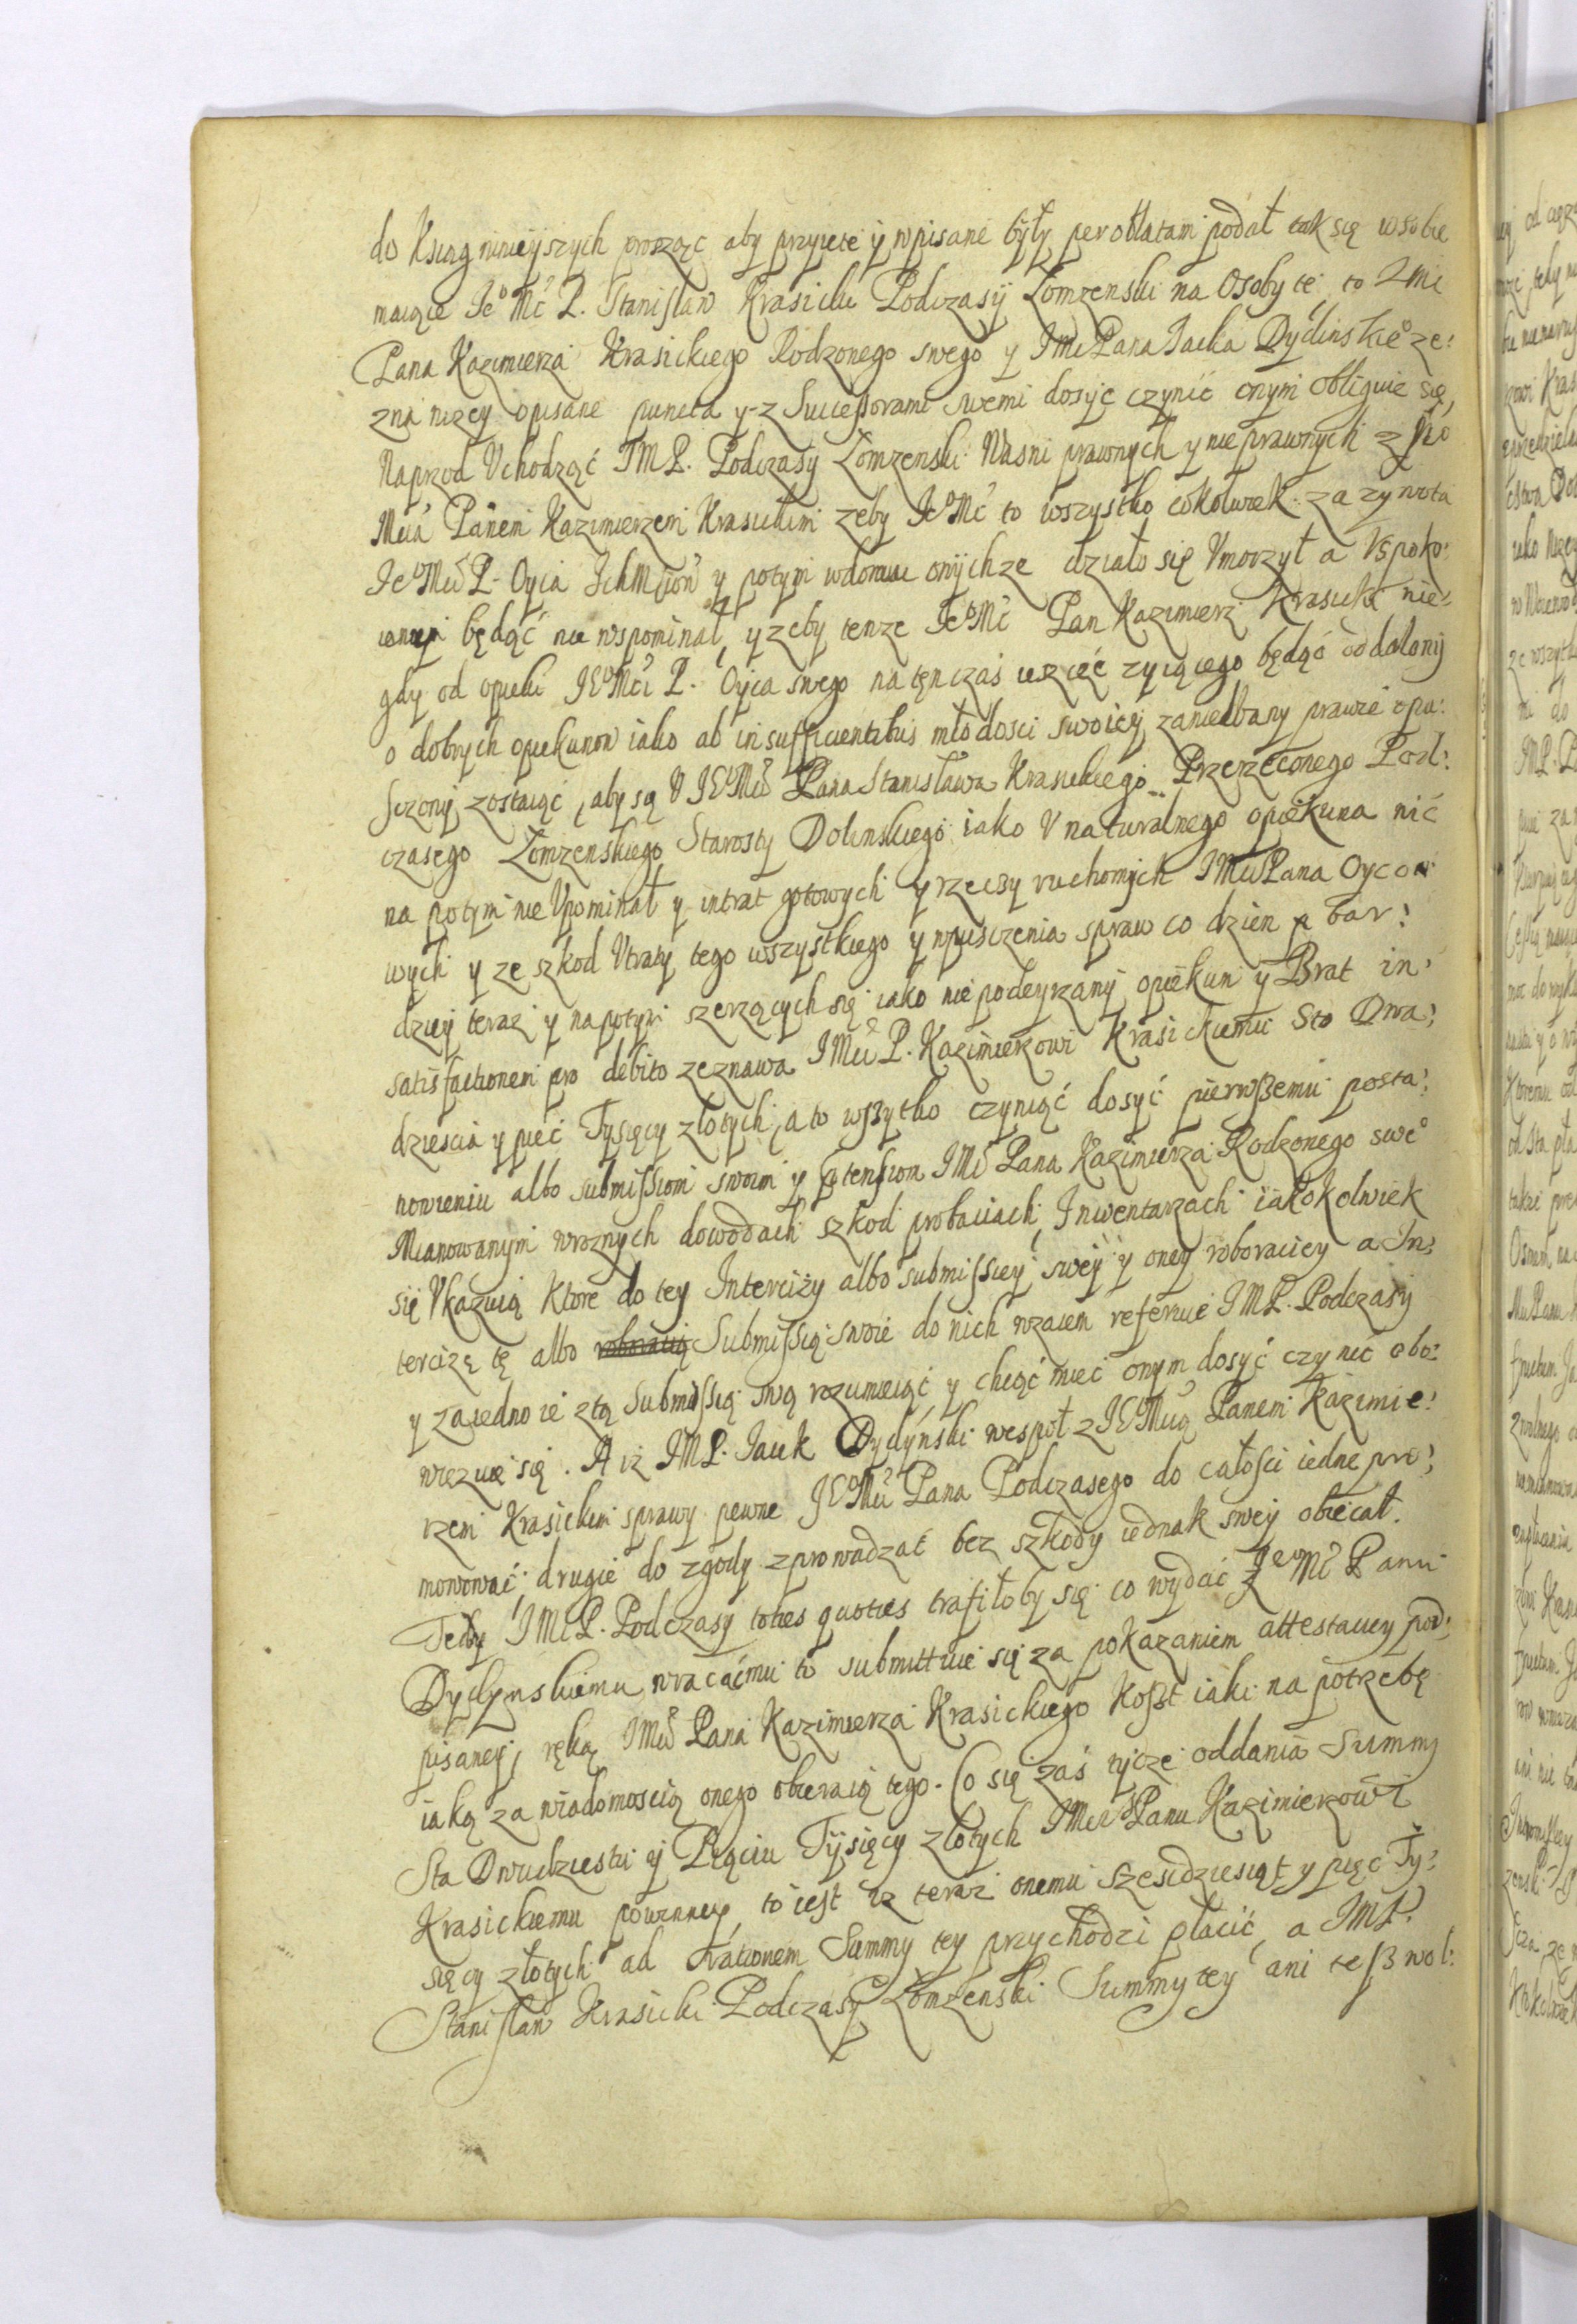 do Ksiąg ninieyszych prosząc aby przyięte y wpisane były per oblatam podał tak się w sobie
maiące Jeo Mć P. Stanisław Krasicki Podczasy Łomzenski na Osoby te to JMć
Pana Kazimierza Krasickiego Rodzonego swego y JMć Pana Jacka Dydinskieo ze:
zna nizey opisane puncta y z Successorami swemi dosyc czynić onym obliguie się,
Naprzod Uchodząć JM P. Podczasy Łomzenski Wasni prawnych y nie prawnych z Jeo
Mcią Panem Kazimierzem Krasickim zeby Jeo Mć to wszystko cokolwiek za zywota
Jeo Mci P. Oyca Ichmciow y potym w domu onychze działo się Umorzył a Uspoko:
ionym będąć nie wspominał, y zeby tenze Jeo Mć Pan Kazimierz Krasicki nie:
gdy od opieki JEo Mci P. Oyca swego na tęn czas ieszcęć zyiącego będąć oddalony
o dobrych opiekunow iako ab insufficientibus młodosci swoiey zaniedbany prawie opu:
sczony zostaiąć, aby są U JEo Mci Pana Stanisława Krasickiego Przerzeconego Pod:
czasego Łomzenskiego Starosty Dolinskiego iako U naturalnego opiekuna nić
na potym nie Upominał y intrat gotowych y rzeczy ruchomych JMci Pana Oycow
wych y ze szkod Utraty tego wszystkiego y upusczenia spraw co dzien a bar:
dziey teraz y napotym szerzących się iako nie podeyrzany opiekun y Brat in
satisfactionem pro debito zeznawa JMci P. Kazimierzowi Krasickiemu Sto Dwa:
dziescia y pieć Tysięcy złotych, a to wszytko czyniąć dosyć pierwszemu posta:
nowieniu albo submissiom swoim y Prtension JMci Pana Kazimierza Rodzonego sweo
Mianowanym w roznych dowodach szkod probaciach, Inwentarzach iakokolwiek
się Ukazuią Ktore do tey Intercizy albo submissiey swey y oney roboraciey a In:
tercizę tę albo roboracią Submissią swoie do nich wzaiem referuie JM P. Podczasy
y za iedno ie z tą Submissią swą rozumieiąć y chcąć mieć onym dosyć czynić obo:
więzuie się. A iz JM P. Jacek Dydyński wespoł z JEo Mcią Panem Kazimie:
rzem Krasickim sprawy pewne JEo Mci Pana Podczasego do całości iedne pro:
mowować, drugie do zgody zprowadzać bez szkody iednak swey obiecał.
Tedy JMć P. Podczasy toties quoties trafiłoby się co wydać Jeo Mć Panu
Dydynskiemu wracać mu to submittuie się za pokazaniem attestaciey pod:
pisaney, ręką JMci Pana Kazimierza Krasickiego Koszt iaki na potrzebę
iaką za wiadomoscią onego obieraią tego. Co się zaś tycze oddania Summy
Sta Dwudziestu y Pięciu Tysięcy złotych JMci Panu Kazimierzowi
Krasickiemu powinney, to iest iz teraz onemu szesdziesiąt y pięć Ty:
sięcy złotych ad rationem Summy tey przychodzi płacić, a JM P.
Stanisław Krasicki Podczasy Łomzenski Summy tey ani tesz wol: